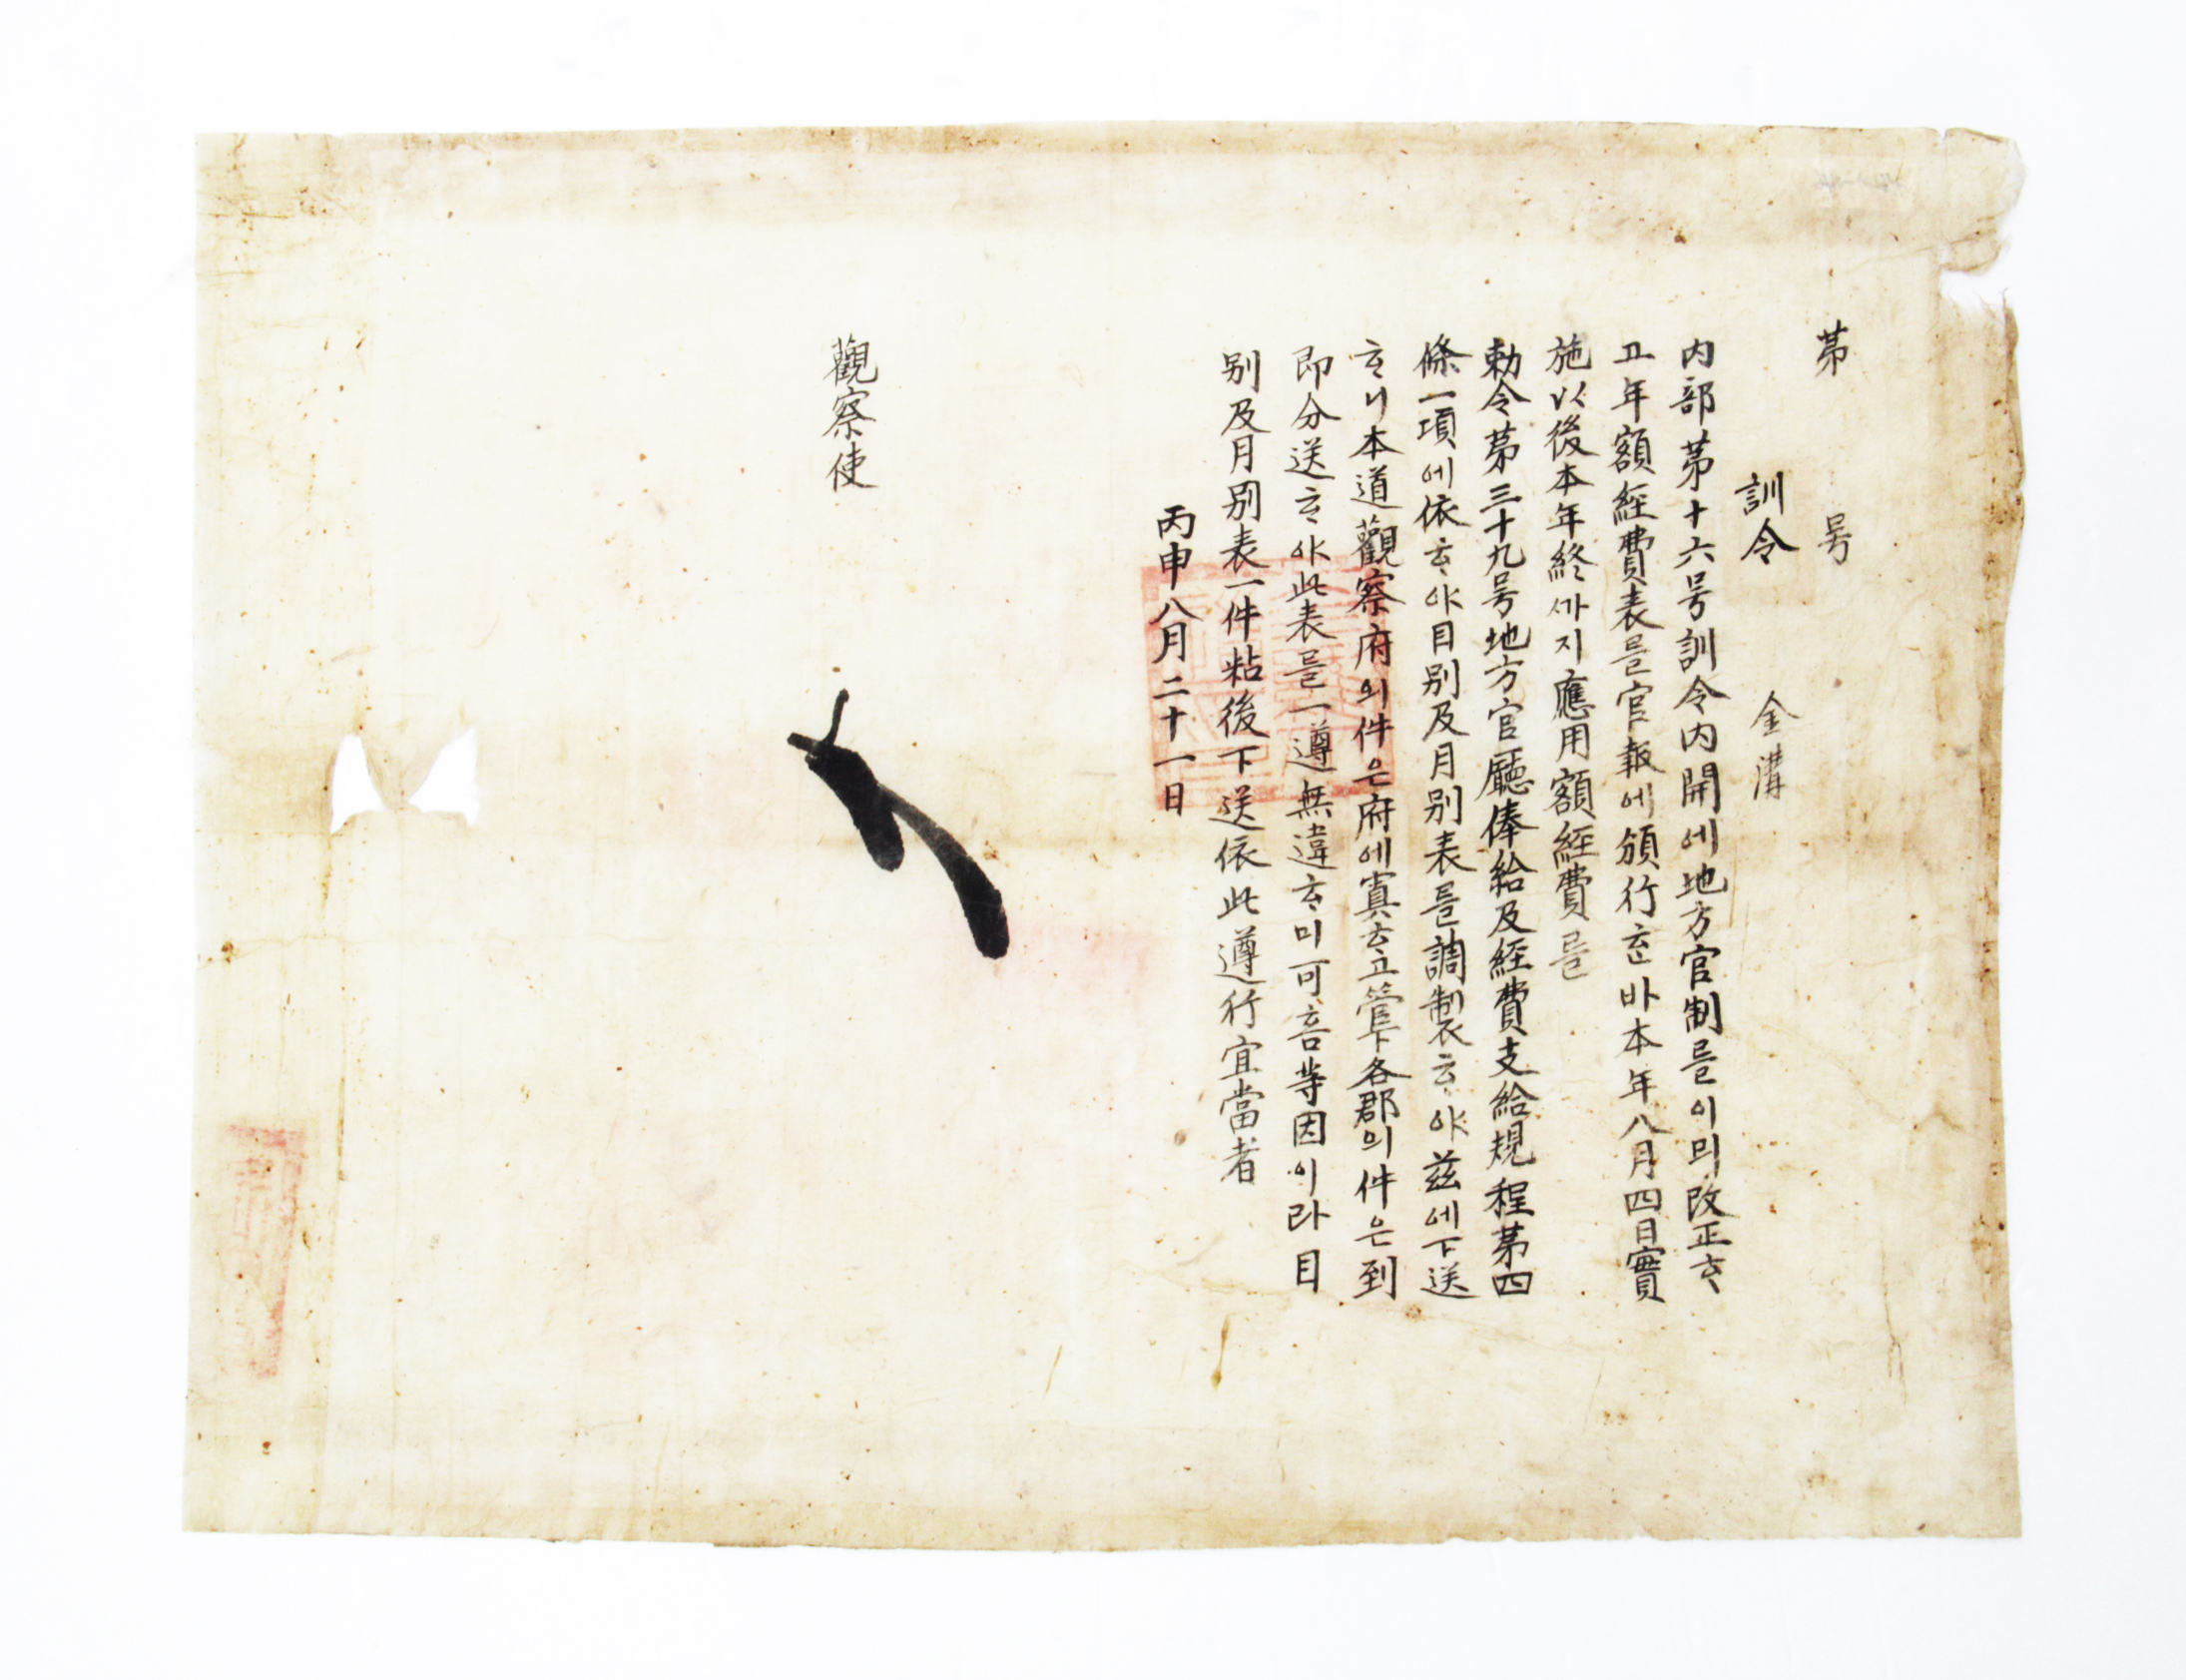 第 号
訓令 金溝
内部第十六号訓令内開에地方官制를이믜改正ᄒᆞ
고年額經費表를官報에頒行ᄒᆞᆫ바本年八月四日實
施以後本年終ᄭᆞ지應用額經費를
勅令第三十九号地方官廳俸給及經費支給規程第四
條一項에依ᄒᆞ야目別及月別表를調製ᄒᆞ야茲에下送
ᄒᆞ니本道觀察府의件은府에寘ᄒᆞ고管下各郡의件은到
即分送ᄒᆞ야此表를一遵無違ᄒᆞ미可흠等因이라目
別及月別表一件粘後下送依此遵行宜當者
丙申八月二十一日
觀察使